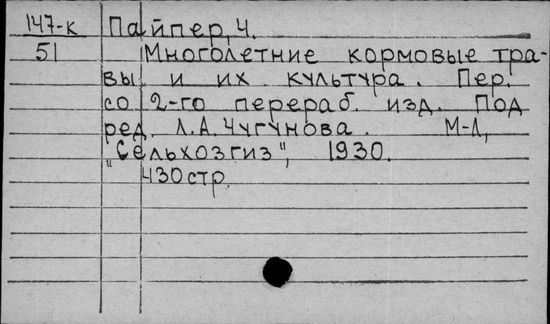 147-к Пайпер, Ч.
51 Многолетние кормовые тра-
вы и их культура. Пер.
со 2-го перераб. изд. Под
ред. Л.А.Чугунова. М-Л,
"Сельхозгиз", 1930.
430стр.